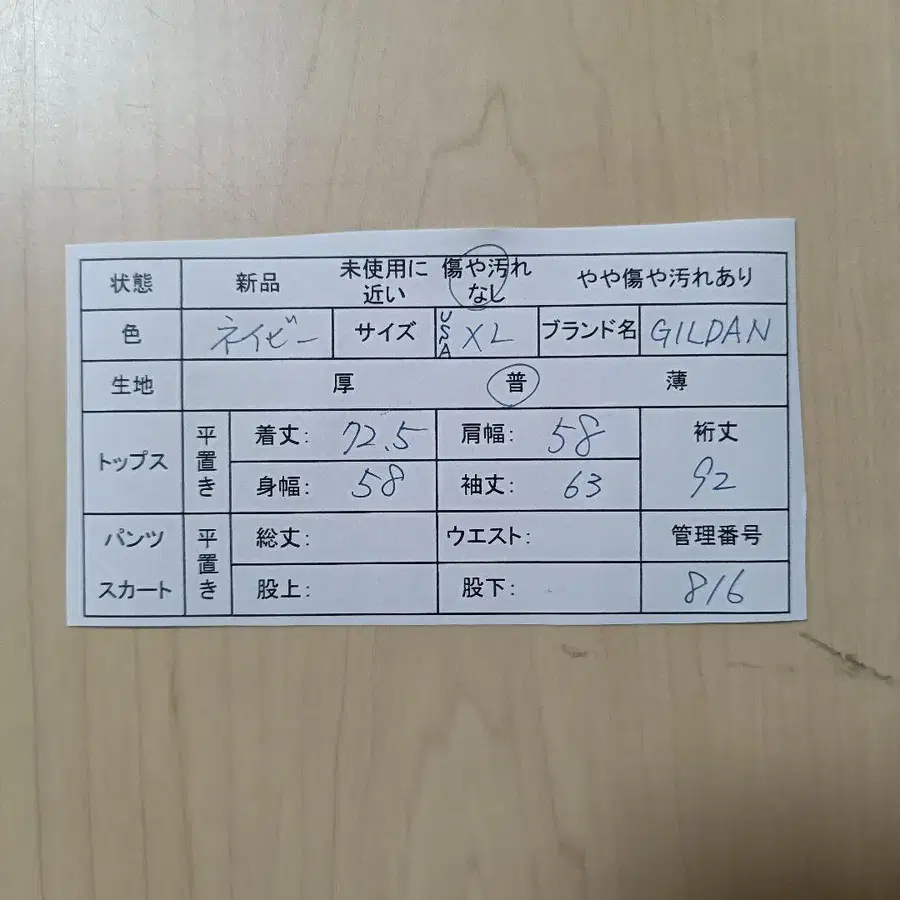 状態 新品 未使用に近い 傷や汚れなし やや傷や汚れあり
色 ネイビー サイズ USA XL ブランド名 GILDAN
生地 厚 普 薄
トップス 平置き 着丈: 72.5 肩幅: 58 裄丈
身幅: 58 袖丈: 63 92
パンツ 平置き 総丈: ウエスト: 管理番号
スカート 股上: 股下: 816